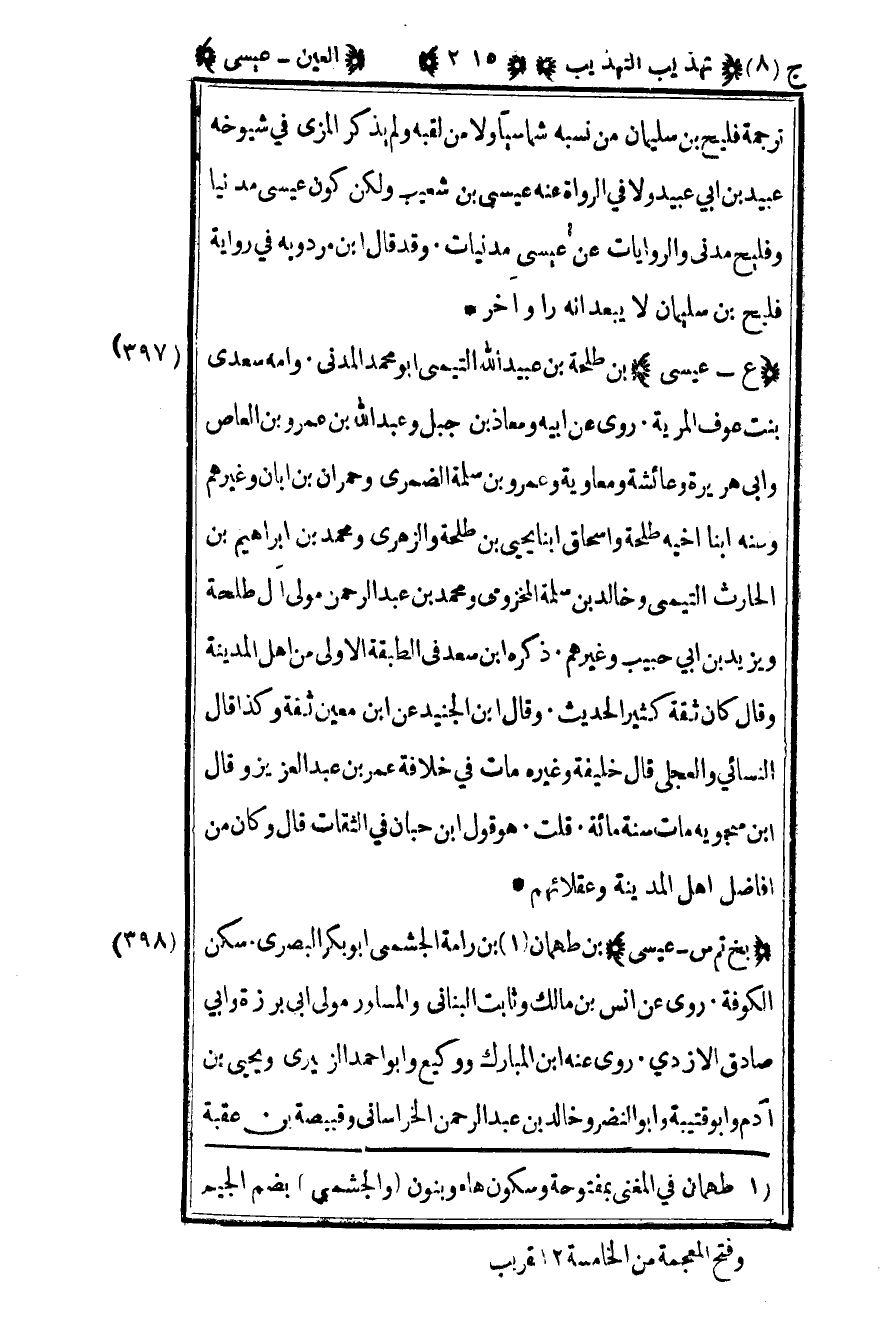 ج (٨) ﴿ تهذيب التهذيب ﴾ ﴿ ٢١٥ ﴾ ﴿ العين - عيسى ﴾
ترجمة فليح بن سليمان من نسبه شماسيا ولا من لقبه ولم يذكر المزى في شيوخه
عبيد بن ابي عبيد ولا في الرواة عنه عيسى بن شعيب ولكن كون عيسى مدنيا
وفليح مدنى والروايات عن عيسى مدنيات . وقد قال ابن مردويه في رواية
فليح بن سليمان لا يبعد انه راو آخر *
(٣٩٧) ﴿ ع - عيسى ﴾ بن طلحة بن عبيد الله التيمى ابو محمد المدنى . وامه سعدى
بنت عوف المرية . روى عن ابيه ومعاذ بن جبل وعبد الله بن عمرو بن العاص
وابى هريرة وعائشة ومعاوية وعمرو بن سلمة الضمرى وحمران بن ابان وغيرهم
وعنه ابنا اخيه طلحة واسحاق ابنا يحيى بن طلحة والزهرى ومحمد بن ابراهيم بن
الحارث التيمى وخالد بن سلمة المخزومى ومحمد بن عبد الرحمن مولى آل طلحة
ويزيد بن ابي حبيب وغيرهم . ذكره ابن سعد فى الطبقة الاولى من اهل المدينة
وقال كان ثقة كثير الحديث . وقال ابن الجنيد عن ابن معين ثقة وكذا قال
النسائي والعجلى قال خليفة وغيره مات في خلافة عمر بن عبد العزيز وقال
ابن منجويه مات سنة مائة . قلت . هو قول ابن حبان في الثقات قال وكان من
افاضل اهل المدينة وعقلائهم *
(٣٩٨) ﴿ بخ تم س - عيسى ﴾ بن طهمان (١) بن رامة الجشمى ابو بكر البصرى . سكن
الكوفة . روى عن انس بن مالك وثابت البنانى والمساور مولى ابى برزة وابي
صادق الازدي . روى عنه ابن المبارك ووكيع وابو احمد الزبيرى ويحيى بن
آدم وابو قتيبة وابو النضر وخالد بن عبد الرحمن الخراسانى وقبيصة بن عقبة
(١ طهمان في المغنى بمفتوحة وسكون هاء وبنون (والجشمى) بضم الجيم
وفتح المعجمة من الخامسة ١٢ تقريب